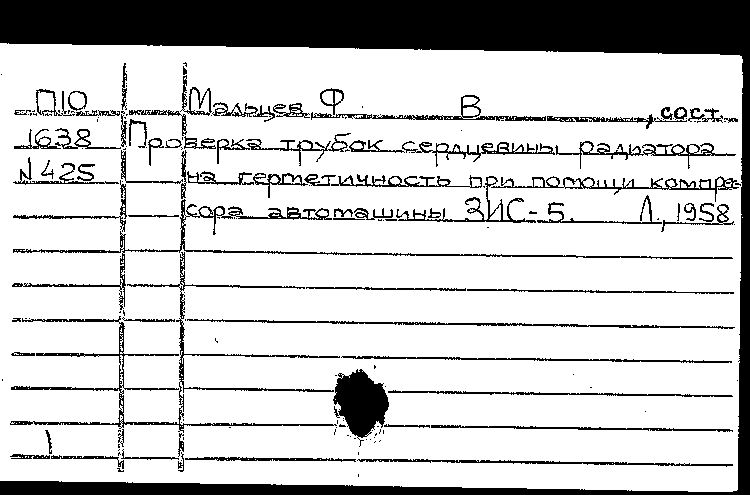 П10 Мальцев Ф В , сост.
1638 Проверка трубок сердцевины радиатора
N425 на герметичность при помощи компрес-
сора автомашины ЗИС-5. Л., 1958
1